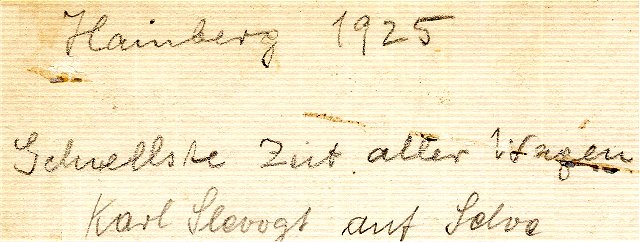 Hainberg 1925
Schnellste Zeit aller Wagen
Karl Slevogt auf Selve